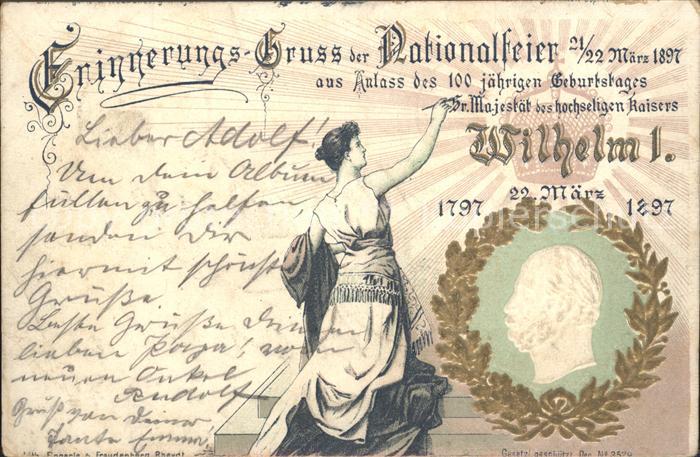 Erinnerungs-Gruss der Nationalfeier 21/22 März 1897
aus Anlass des 100 jährigen Geburtstages
Sr. Majestät des hochseligen Kaisers
Wilhelm I.
22. März
1797 1897
Lieber Adolf!
Um dein Album
füllen zu helfen,
senden Dir
hiermit schönste
Grüße
Beste Grüße Deinem
lieben Papa! vom
neuen Onkel
Rudolf
Gruß von Deiner
Tante Emma!
Lith. & Freudenberg, Rheydt
Gesetzl. geschützt. No. 2529